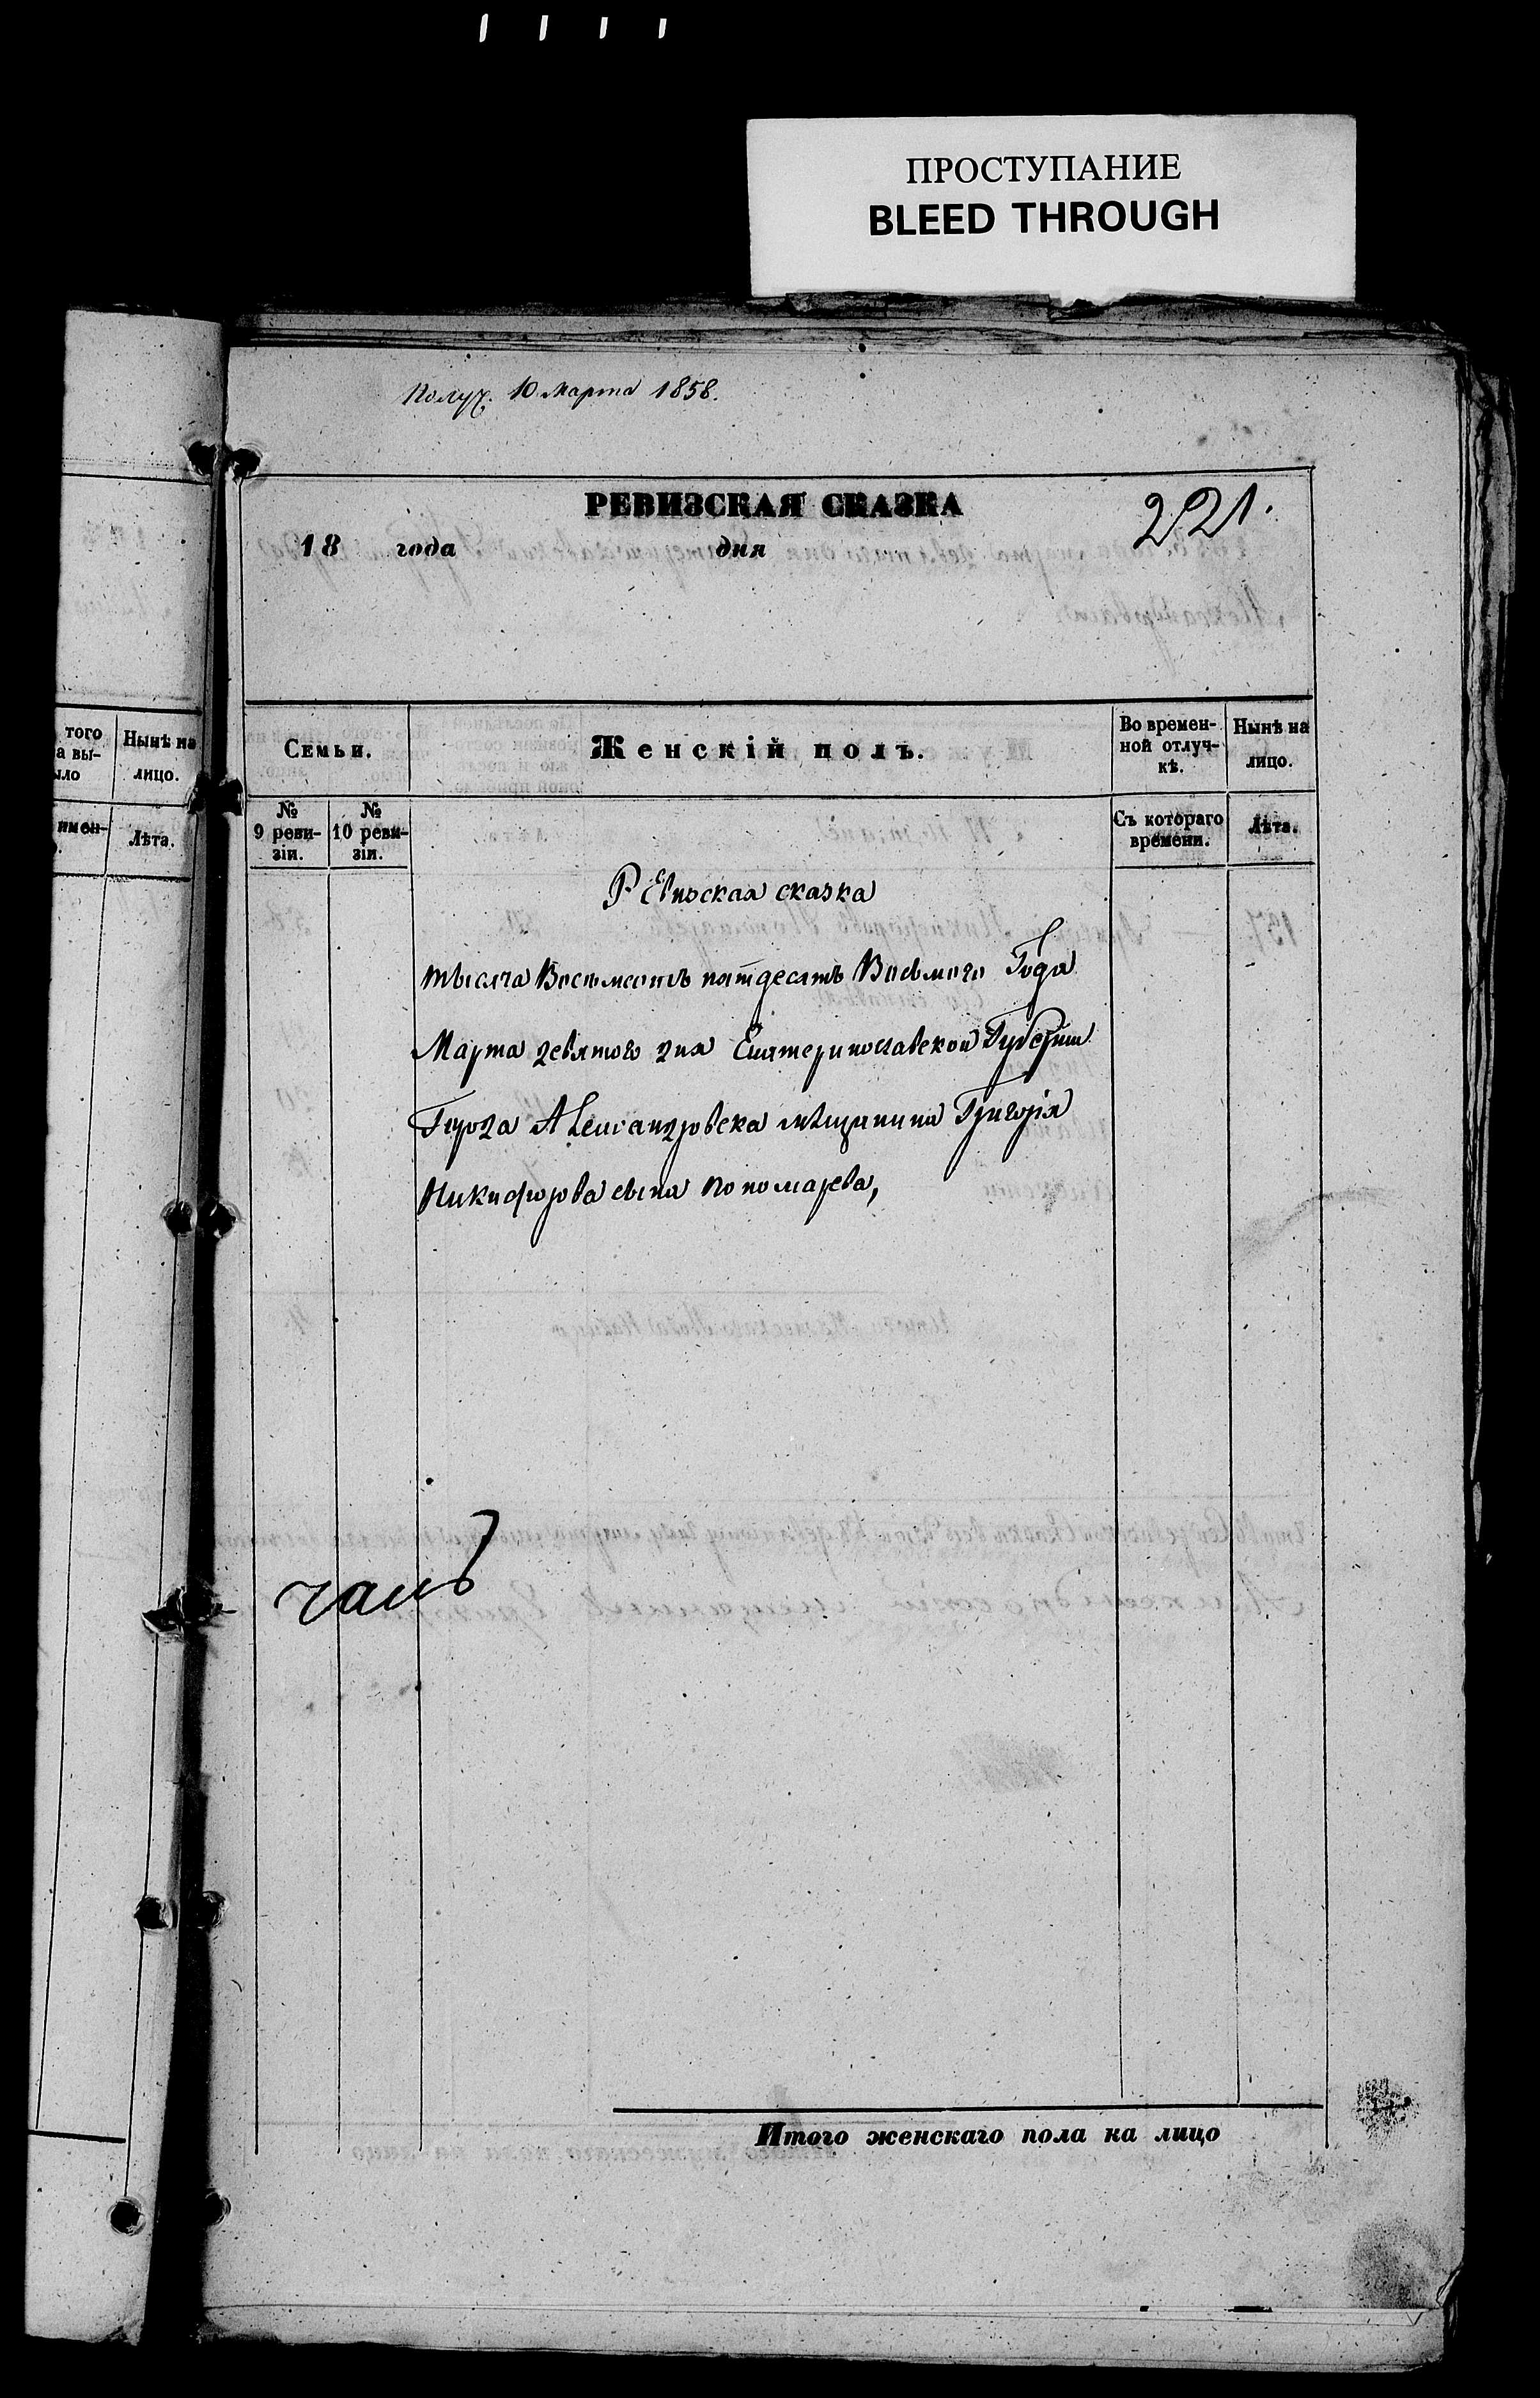 ПРОСТУПАНИЕ
BLEED THROUGH
Получ. 10 Марта 1858.
РЕВИЗСКАЯ СКАЗКА
221.
18 года дня
того
а вы-
ыло
Нынѣ на
лицо.
имен-
Лѣта.
Семьи.
Женскій полъ.
Во времен-
ной отлуч-
кѣ.
Нынѣ на
лицо.
№
9 реви-
зіи.
№
10 реви-
зіи.
Съ котораго
времени.
Лѣта.
РЕвизская сказка
тысяча Восемсотъ пятдесятъ Восьмого Года
Марта девятого дня Екатеринославской Губерніи
Города Александровска мѣщанина Григорія
Никифорова сына пономарева,
Итого женскаго пола на лицо